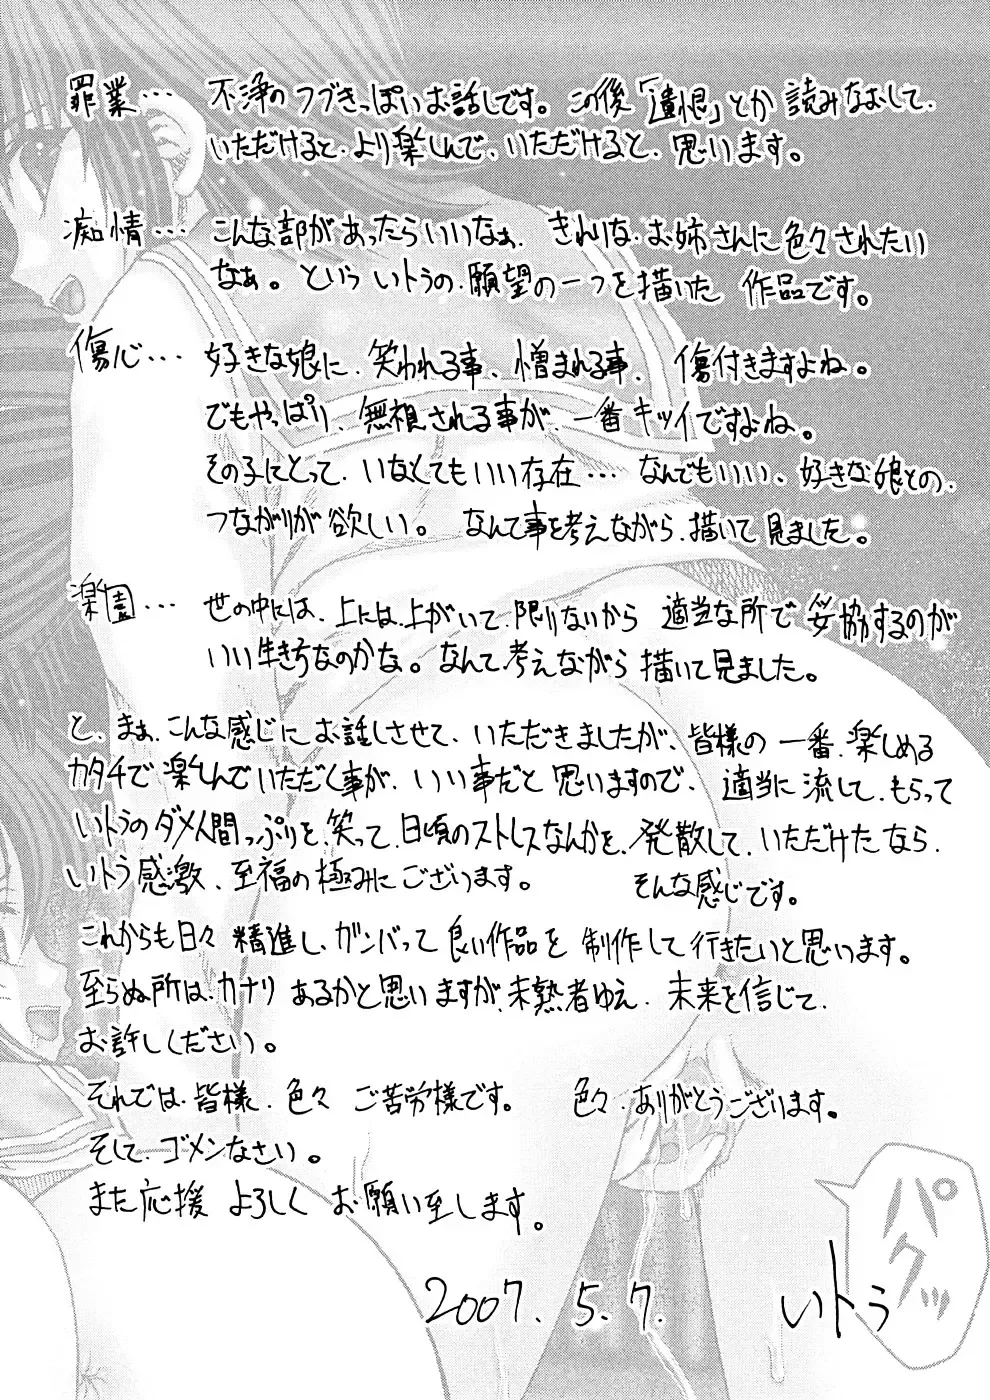 罪業… 不浄のつづきっぽいお話しです。この後「遺恨」とか読みなおして、
いただけると、より楽しんで、いただけると、思います。
痴情… こんな部があったらいいなぁ、きれいな、お姉さんに色々されたい
なぁ。という いトうの、願望の一つを描いた 作品です。
傷心… 好きな娘に、笑われる事、憎まれる事、傷付きますよね。
でもやっぱり、無視される事が、一番キツイですよね。
その子にとって、いなくてもいい存在… なんでもいい、好きな娘との、
つながりが欲しい。 なんて事を考えながら、描いて見ました。
楽園… 世の中には、上には、上がいて、限りないから 適当な所で妥協するのが
いい生き方なのかな。なんて考えながら描いて見ました。
と、まぁ、こんな感じに お話しさせて、いただきましたが、皆様の 一番、楽しめる
カタチで楽しんでいただく事が、いい事だと思いますので、適当に流して、もらって
いトうのダメ人間っぷりを、笑って、日頃のストレスなんかを、発散して、いただけたなら、
いトう感激、至福の極みにございます。 そんな感じです。
これからも日々 精進し、ガンバって 良い作品を 制作して行きたいと思います。
至らぬ所は、カナリ あるかと思いますが、未熟者ゆえ、未来を信じて、
お許しください。
それでは、皆様、色々 ご苦労様です。 色々、ありがとうございます。
そして、ゴメンなさい。
また応援 よろしく お願い至します。
パクッ
2007.5.7. いトう